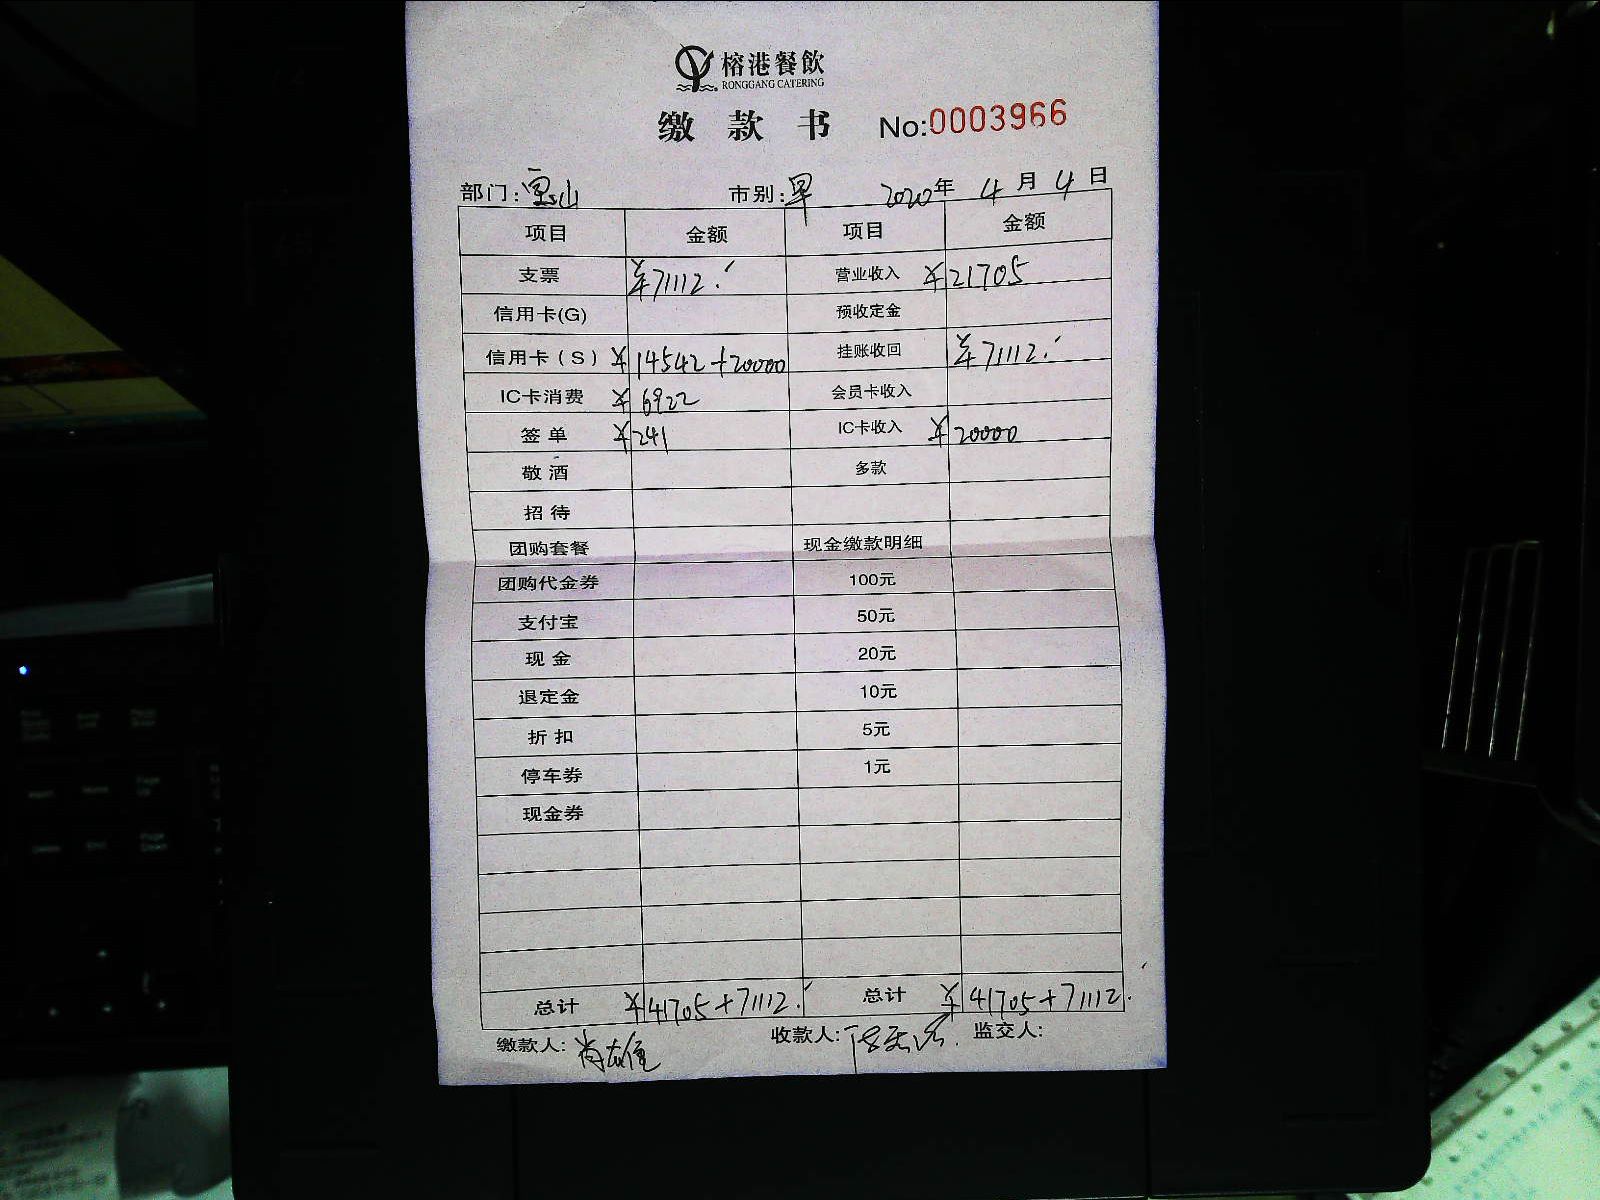 榕港餐飲
RONGGANG CATERING
缴款书 No:0003966
部门:宝山 市别:早 2020年4月4日
项目 金额 项目 金额
支票 ¥71112. 营业收入 ¥21705
信用卡(G) 预收定金
信用卡(S) ¥14542+20000 挂账收回 ¥71112.
IC卡消费 ¥6922 会员卡收入
签单 ¥241 IC卡收入 ¥20000
敬酒 多款
招待
团购套餐 现金缴款明细
团购代金券 100元
支付宝 50元
现金 20元
退定金 10元
折扣 5元
停车券 1元
现金券
总计 ¥41705+71112. 总计 ¥41705+71112.
缴款人: 收款人: 监交人: